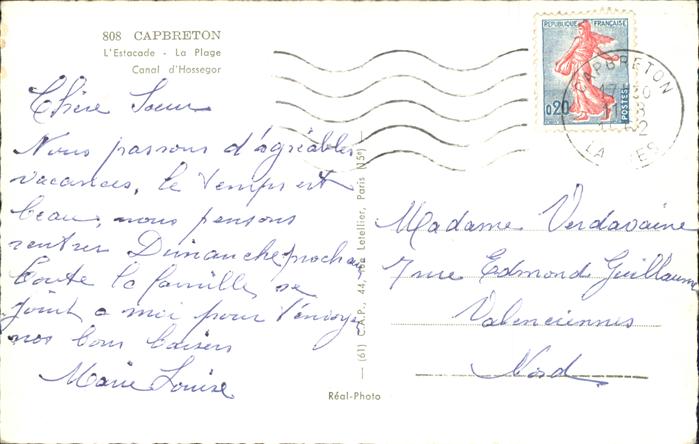 808 CAPBRETON
L'Estacade - La Plage
Canal d'Hossegor
REPUBLIQUE FRANÇAISE
0,20
POSTES
CAPBRETON
17 30
LA ES
Chère Soeur
Nous passons d'agréables
vacances, le temps est
beau, nous pensons
rentrer Dimanche prochain
toute la famille se
joint a moi pour t'envoyer
nos bons baisers
Marie Louise
(61) C.A.P., 44, rue Letellier, Paris (15e)
Réal-Photo
Madame Verdavaine
7 rue Edmond Guillaume
Valenciennes
Nord